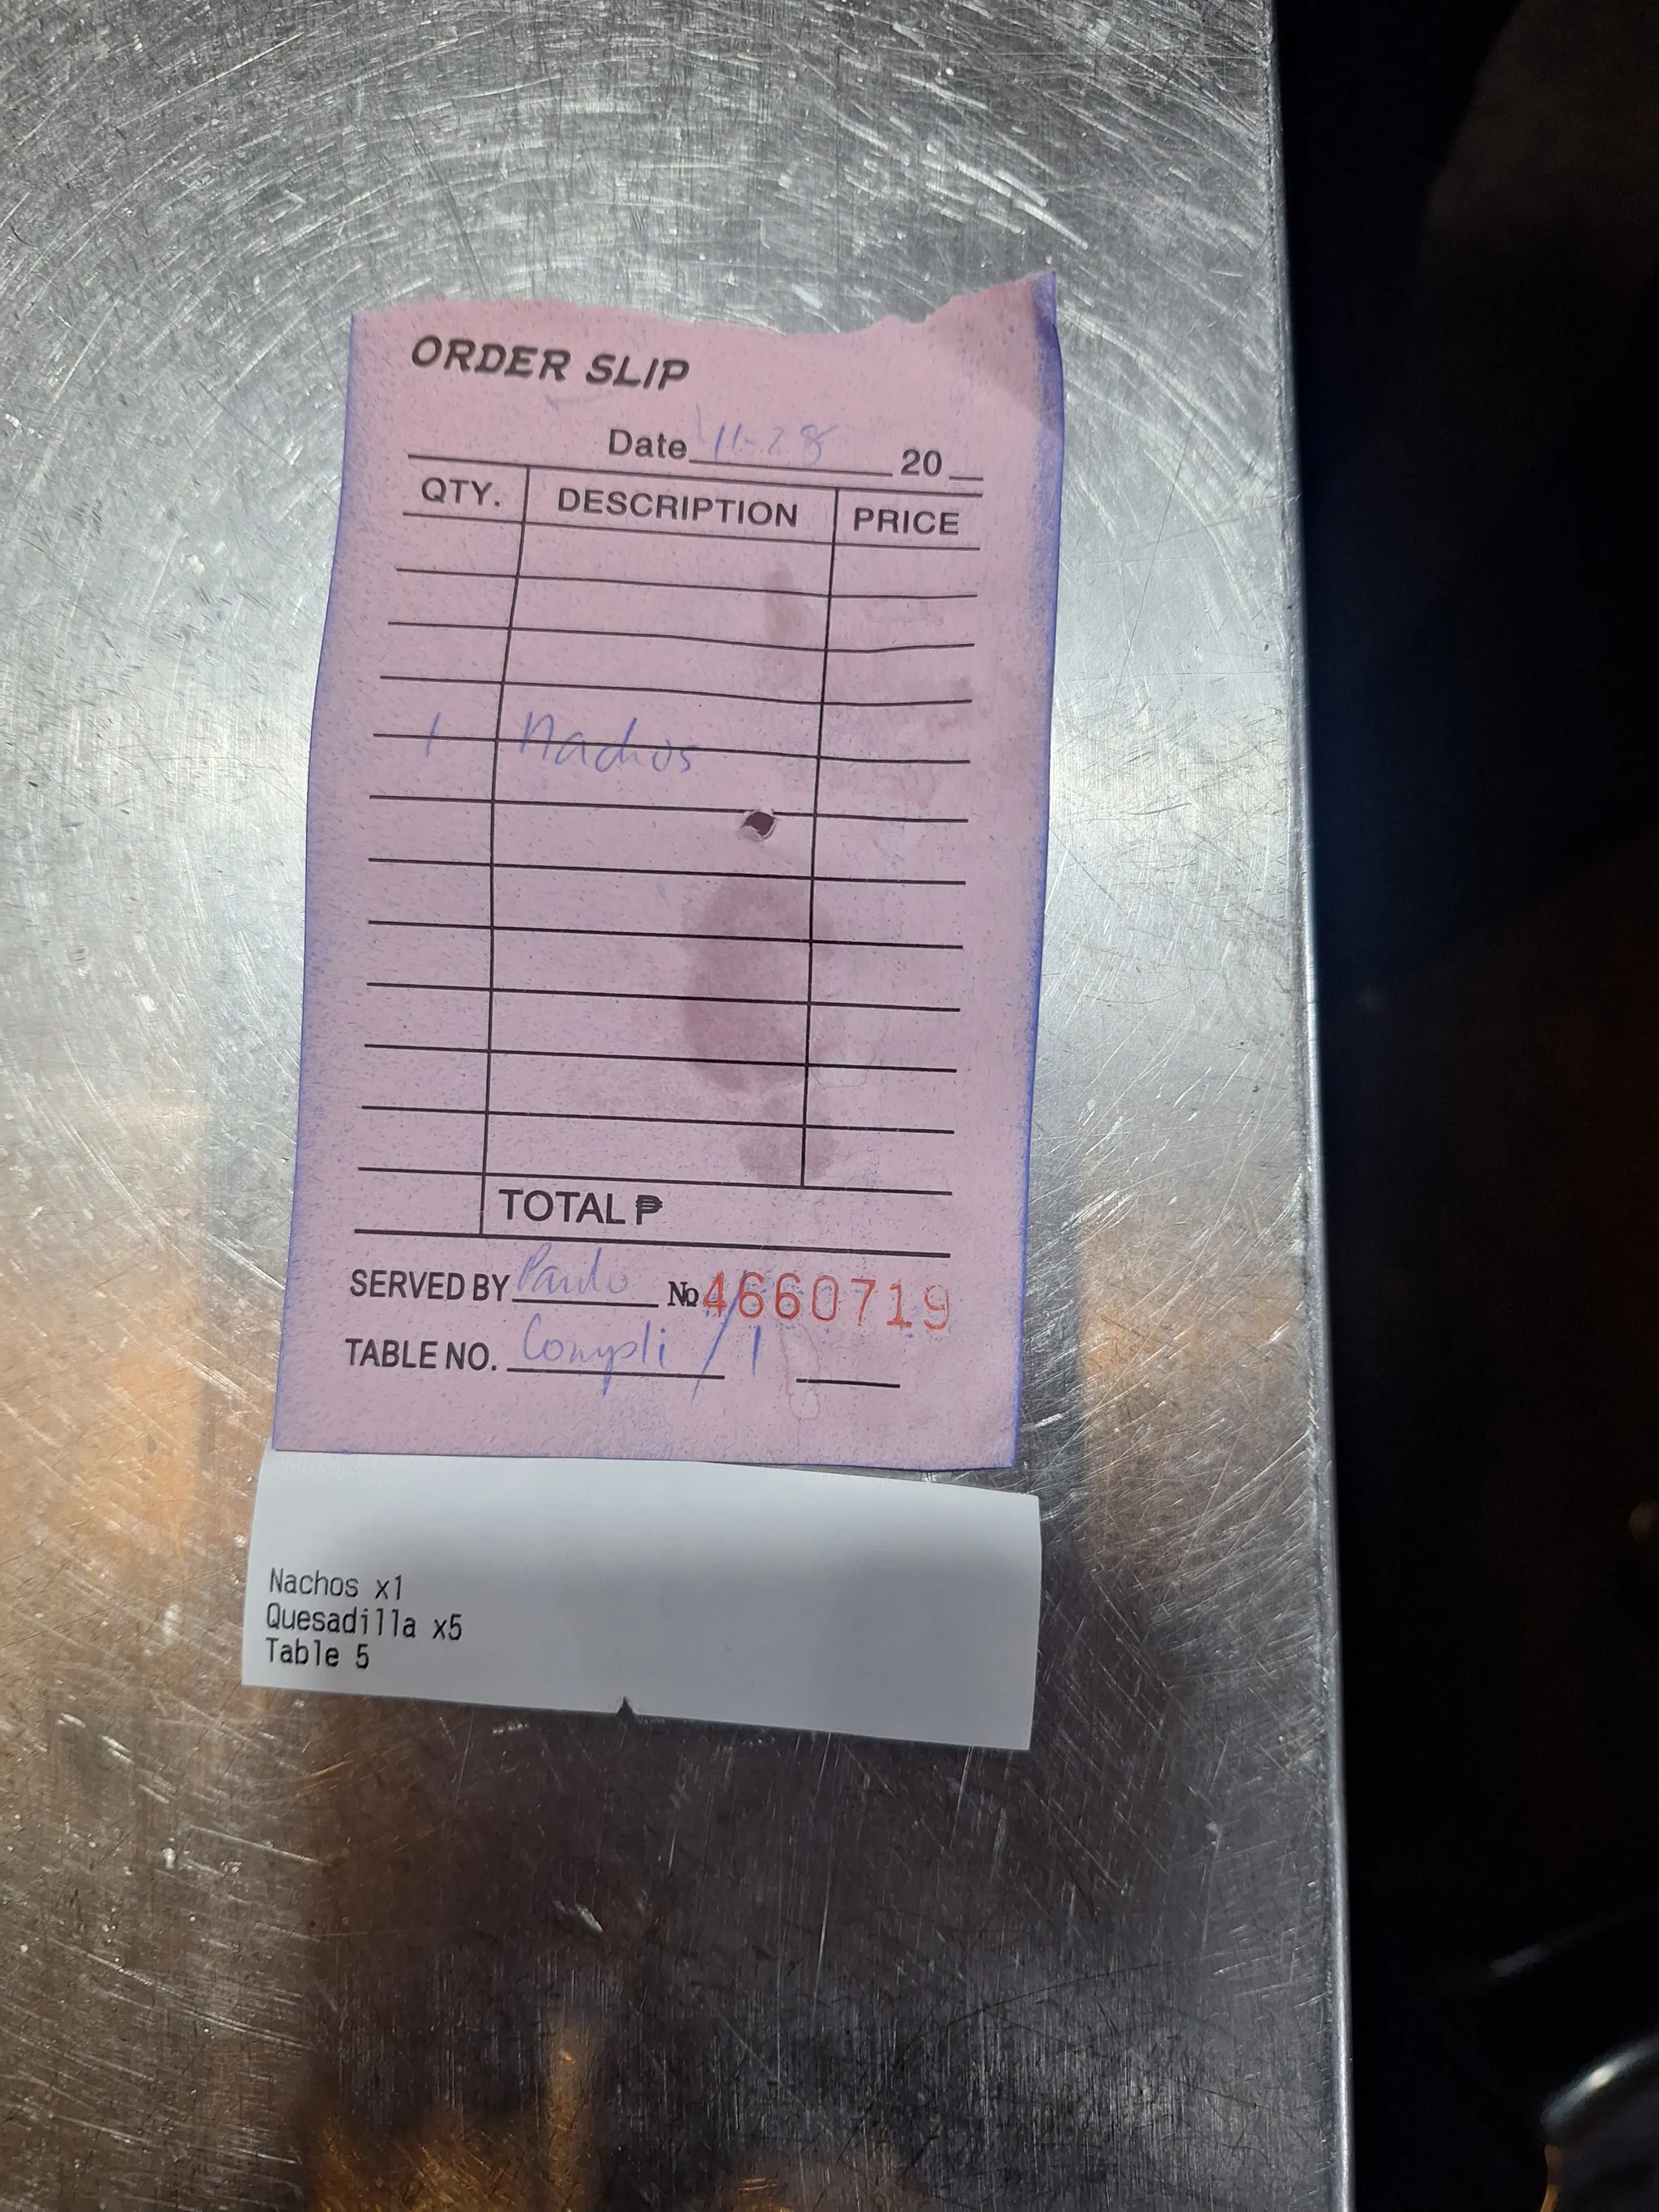 ORDER SLIP
Date 11-28 20
QTY. DESCRIPTION PRICE
1 Nachos
TOTAL ₱
SERVED BY Paulo No 4660719
TABLE NO. Compli / 1
Nachos x1
Quesadilla x5
Table 5